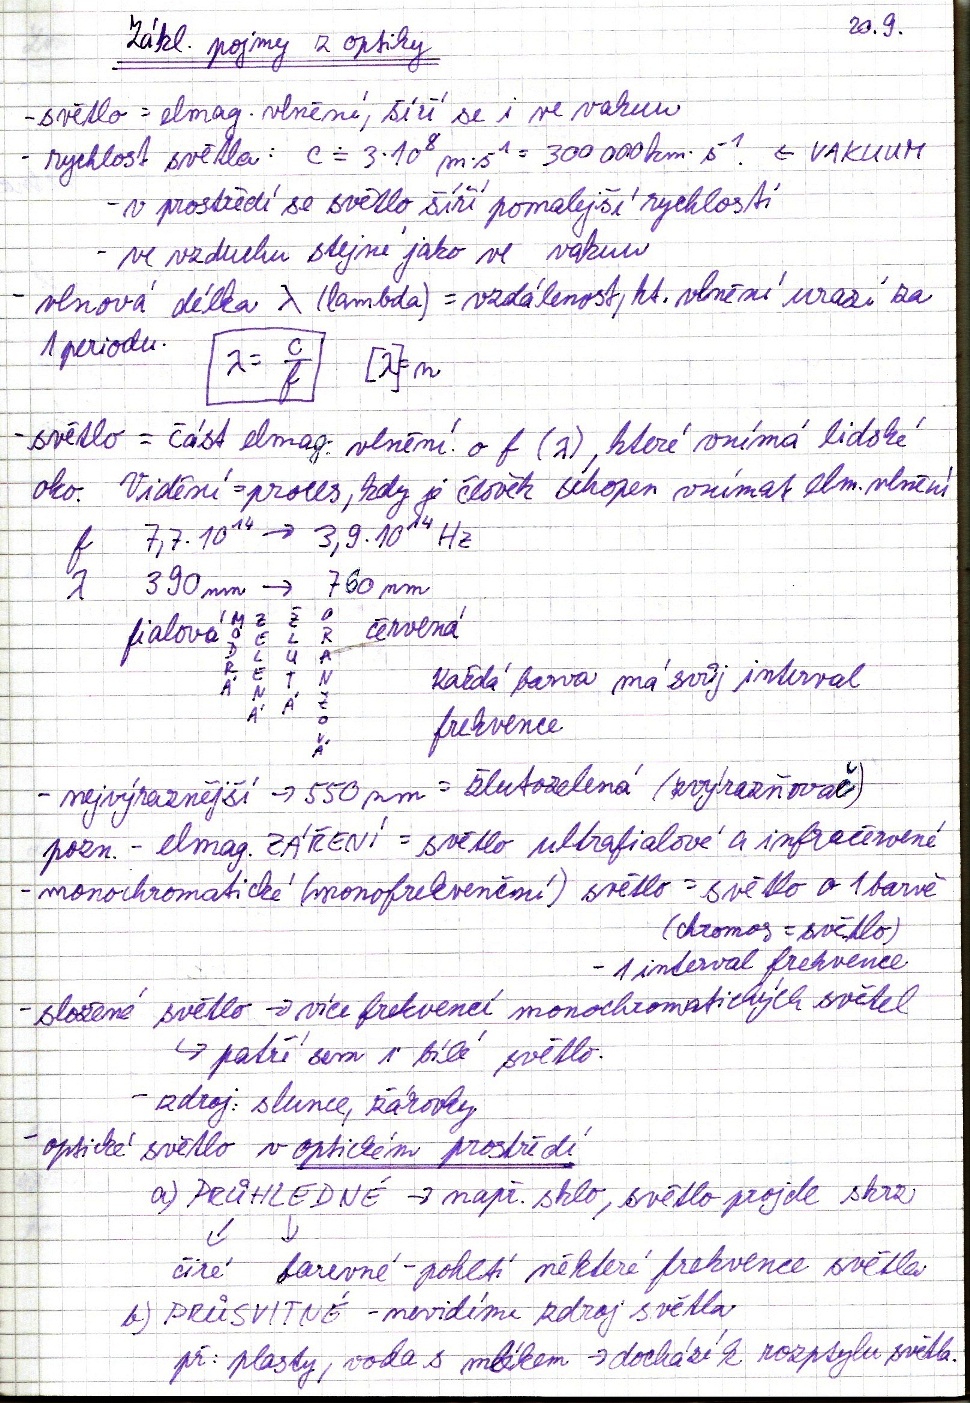 Zákl. pojmy z optiky
20.9.
- světlo = elmag. vlnění, šíří se i ve vakuu
- rychlost světla: c ≐ 3·10⁸ m·s⁻¹ = 300 000 km·s⁻¹. ← VAKUUM
- v prostředí se světlo šíří pomalejší rychlostí
- ve vzduchu stejně jako ve vakuu
- vlnová délka λ (lambda) = vzdálenost, kt. vlnění urazí za
1 periodu.
λ = c/f [λ]=m
- světlo = část elmag. vlnění o f (λ), které vnímá lidské
oko. Vidění = proces, kdy je člověk schopen vnímat elm. vlnění
f 7,7·10¹⁴ → 3,9·10¹⁴ Hz
λ 390 nm → 760 nm
fialová MODRÁ ZELENÁ ŽLUTÁ ORANŽOVÁ červená
každá barva má svůj interval
frekvence
- nejvýraznější → 550 nm = žlutozelená (zvýrazňovač)
pozn. - elmag. ZÁŘENÍ = světlo ultrafialové a infračervené
- monochromatické (monofrekvenční) světlo = světlo o 1 barvě
(chromos = světlo)
- 1 interval frekvence
- složené světlo → více frekvencí monochromatických světel
↳ patří sem i bílé světlo.
- zdroj: slunce, žárovky
- optické světlo v optickém prostředí
a) PRŮHLEDNÉ → např. sklo, světlo projde skrz
↙ ↓
čiré barevné - pohltí některé frekvence světla
b) PRŮSVITNÉ - nevidíme zdroj světla
př: plasty, voda s mlékem → dochází k rozptylu světla.